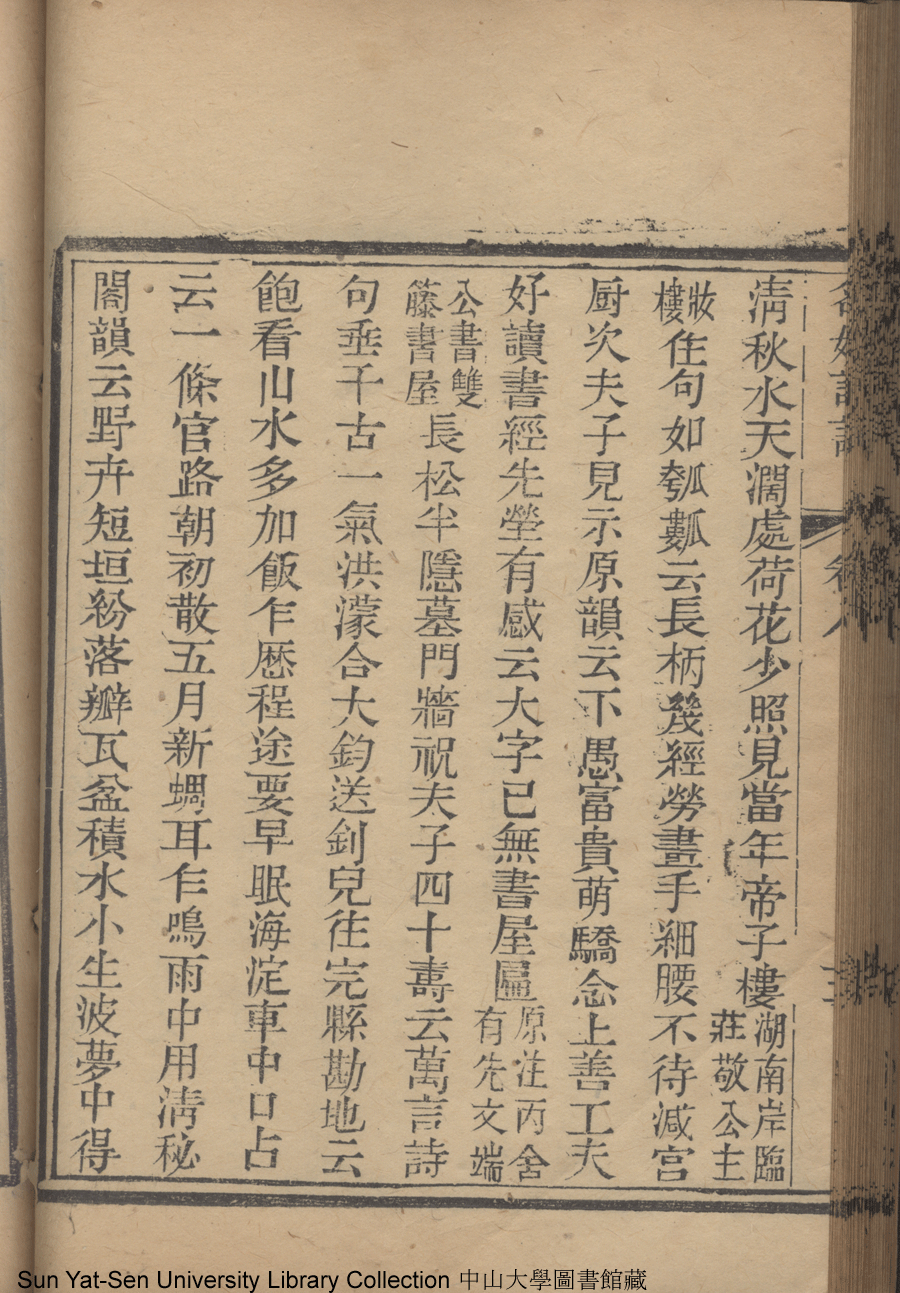 名媛詩話 卷八
清秋水天濶處荷花少照見當年帝子樓湖南岸臨莊敬公主
妝樓佳句如瓠瓢云長柄幾經勞畫手細腰不待减宮
厨次夫子見示原韻云下愚富貴萌驕念上善工夫
好讀書經先塋有感云大字已無書屋匾原注丙舍有先文端
公書雙籐書屋長松半隱墓門牆祝夫子四十壽云萬言詩
句垂千古一氣洪濛合大鈞送釗兒往完縣勘地云
飽看山水多加飯乍歷程途要早眠海淀車中口占
云一條官路朝初散五月新蜩耳乍鳴雨中用清秘
閣韻云野卉短垣紛落瓣瓦盆積水小生波夢中得
Sun Yat-Sen University Library Collection 中山大學圖書館藏